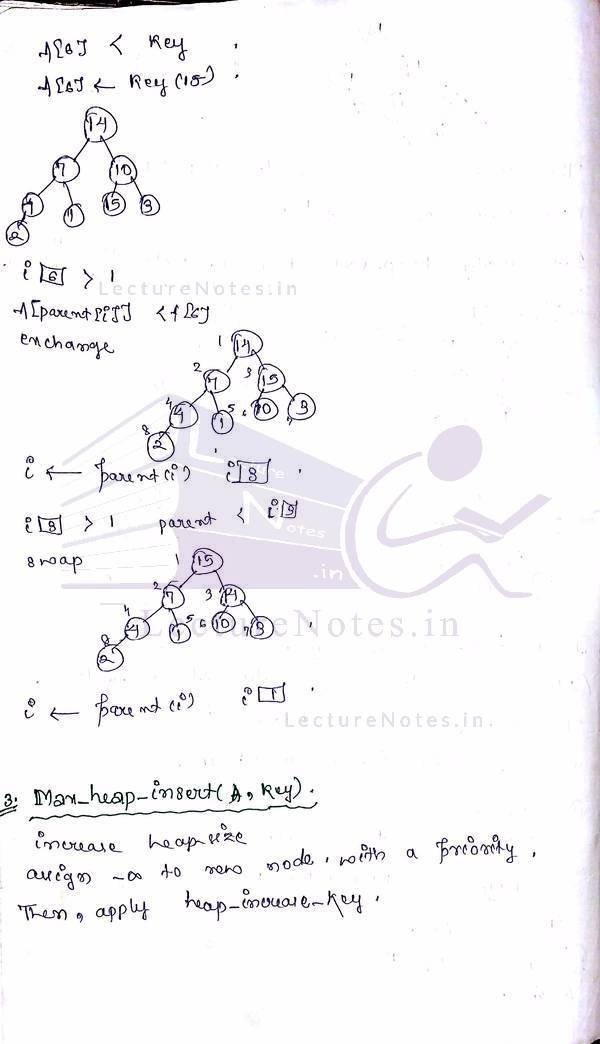 A[6] < Key
A[6] ← Key (15)
14
7 10
4 1 15 3
2
i 6 > 1
LectureNotes.in
A[parent[i]] < A[6]
exchange
1 14
2 7 3 15
4 4 5 1 6 10 7 3
8 2
i ← parent(i) i 3
i 3 > 1 parent < i 3
swap
Lecture Notes .in
1 15
2 7 3 14
4 4 5 1 6 10 7 3
8 2
LectureNotes.in
i ← parent(i) i 1
LectureNotes.in
3. Max_heap_insert(A, Key).
increase heap size
assign -∞ to new node, with a priority.
Then, apply heap_increase_key.